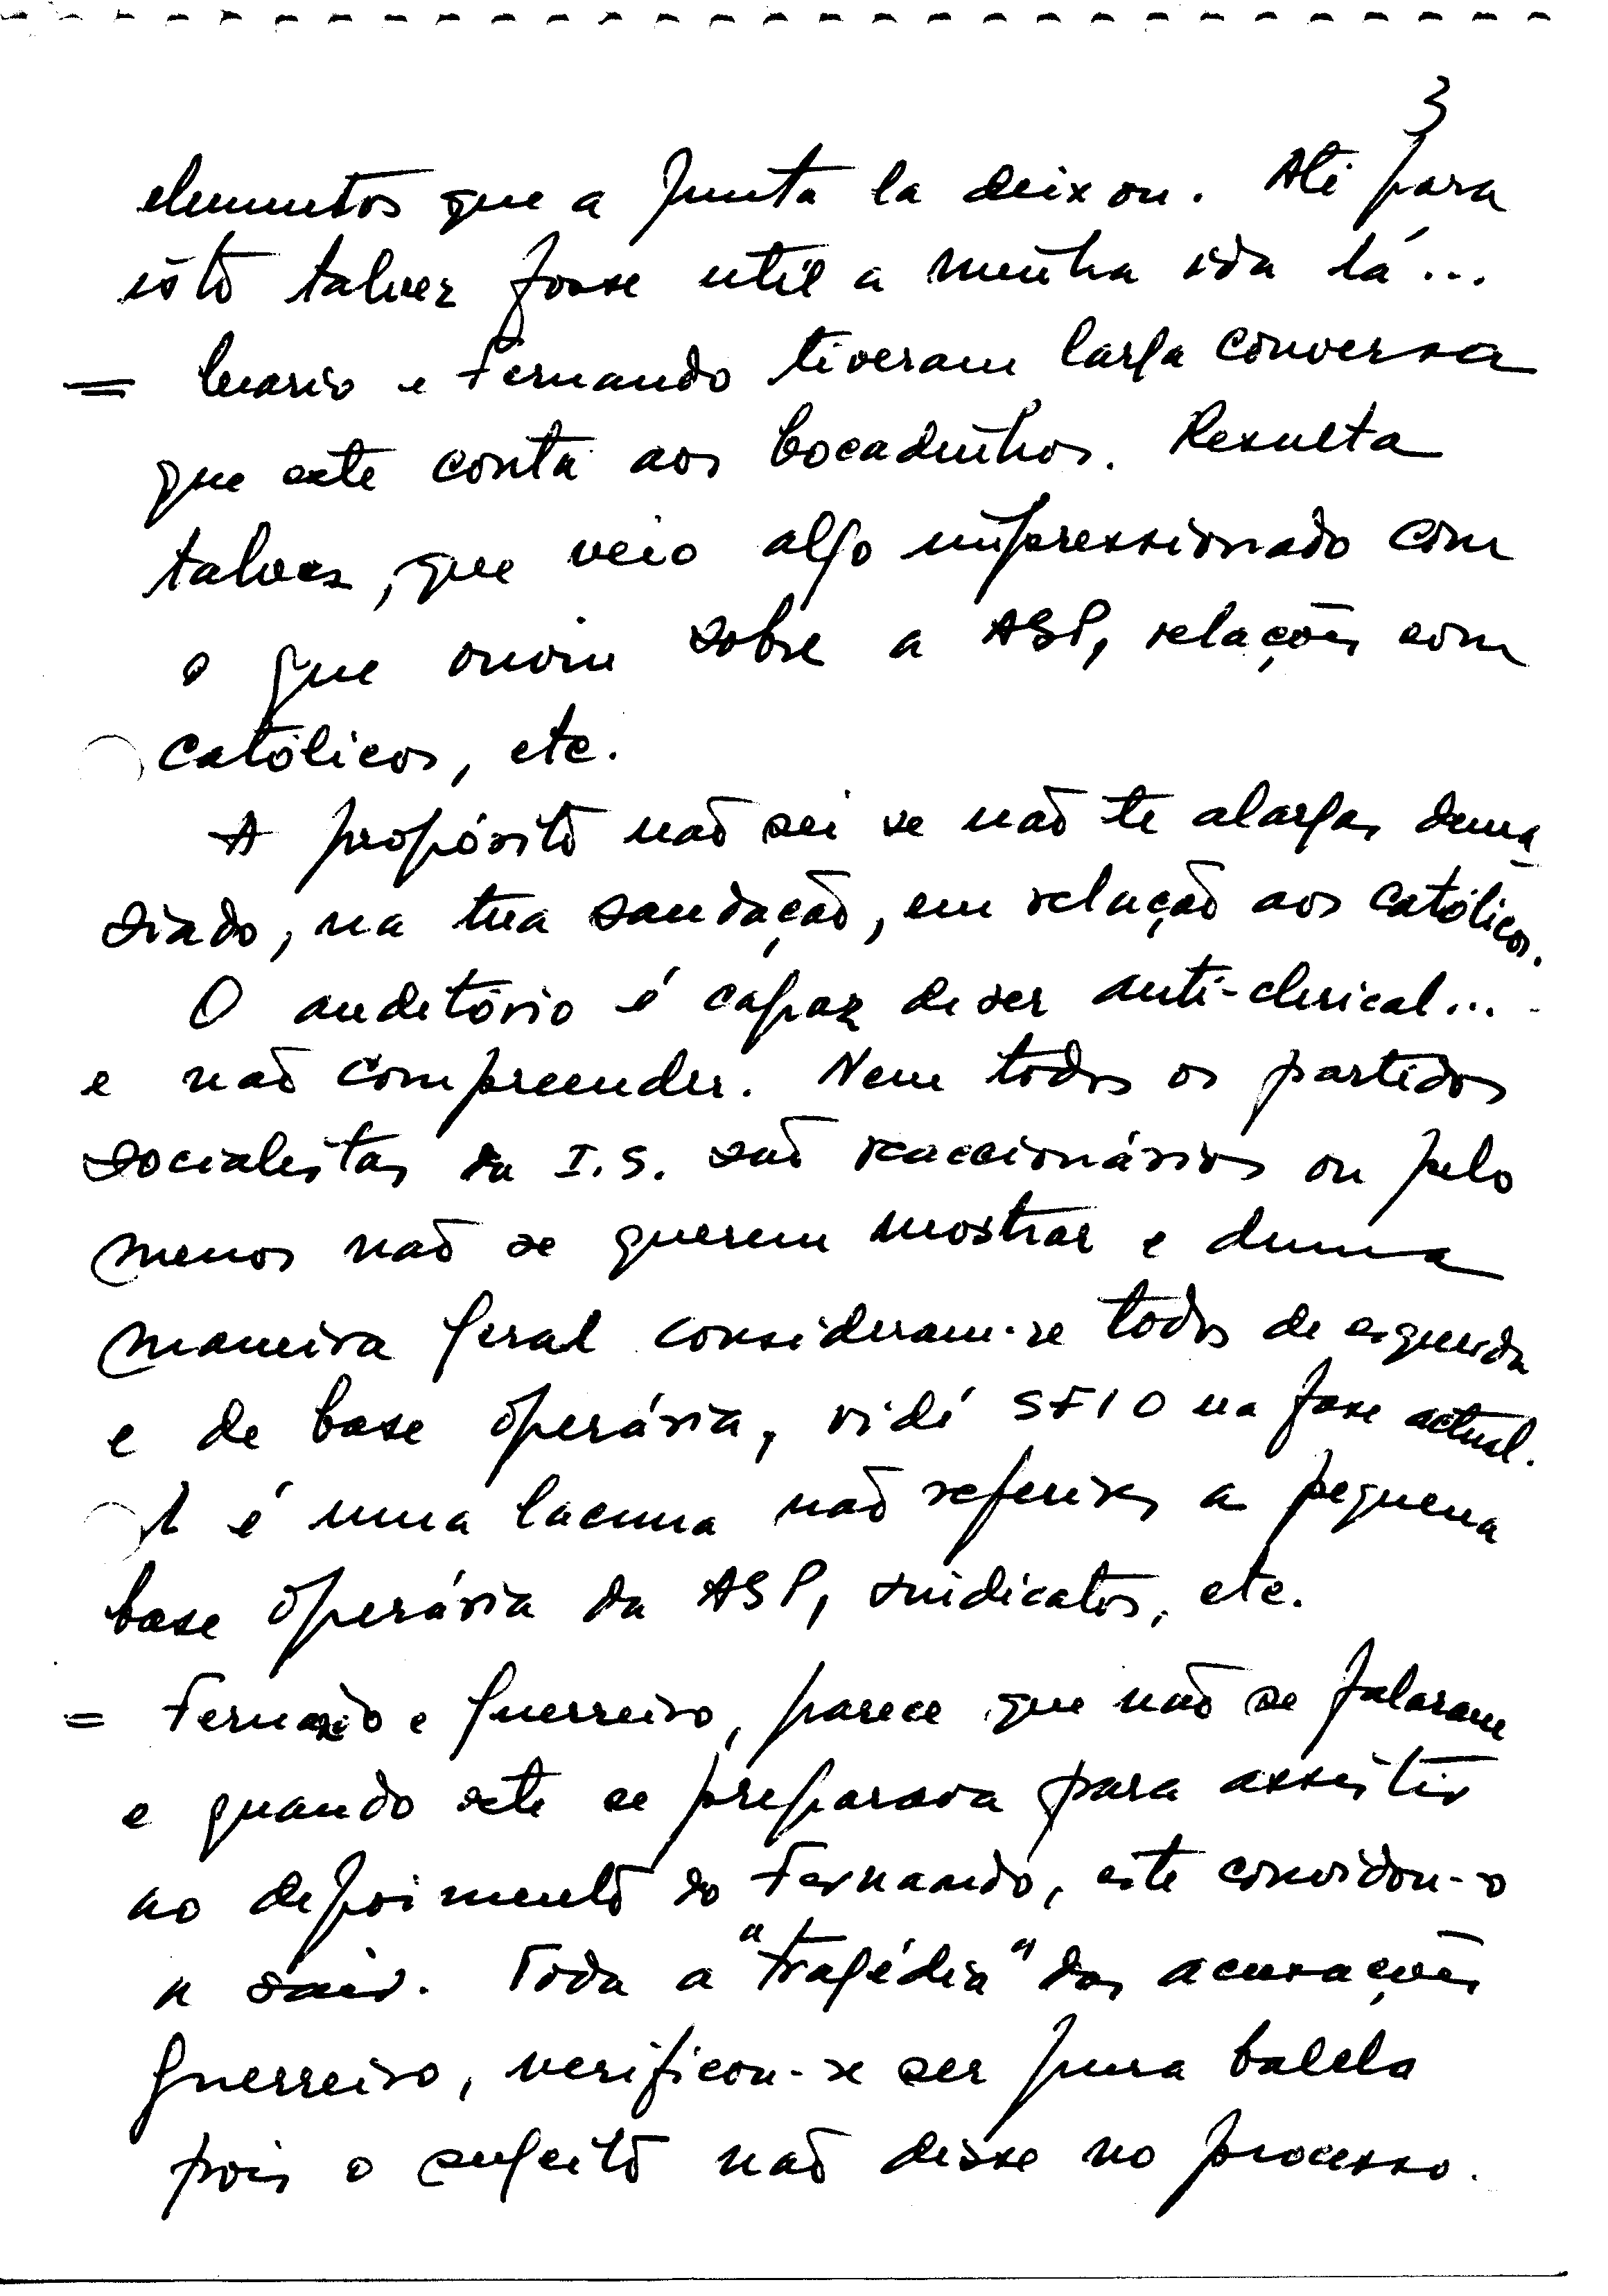 3
elementos que a Junta la deixou. Até para
isto talvez fosse util a minha ida lá...
= Mario e Fernando tiveram larga conversa
que este conta aos bocadinhos. Resulta
talvez, que veio algo impressionado com
o que ouviu sobre a ASP, relações com
católicos, etc.
A propósito não sei se não te alargas dema
siado, na tua saudação, em relação aos católicos.
O auditório é capaz de ser anti-clerical...
e não compreender. Nem todos os partidos
socialistas da I.S. são reaccionários ou pelo
menos não se querem mostrar e duma
maneira geral consideram-se todos de esquerda
e de base operária, vidé SFIO na fase actual.
é uma lacuna não referires a pequena
base operária da ASP, sindicatos, etc.
= Fernando e Guerreiro, parece que não se falaram
e quando este se preparava para assistir
ao depoimento do Fernando, este convidou-o
a sair. Toda a "tragédia" das acusações
Guerreiro, verificou-se ser pura balela
pois o sujeito não disse no processo.